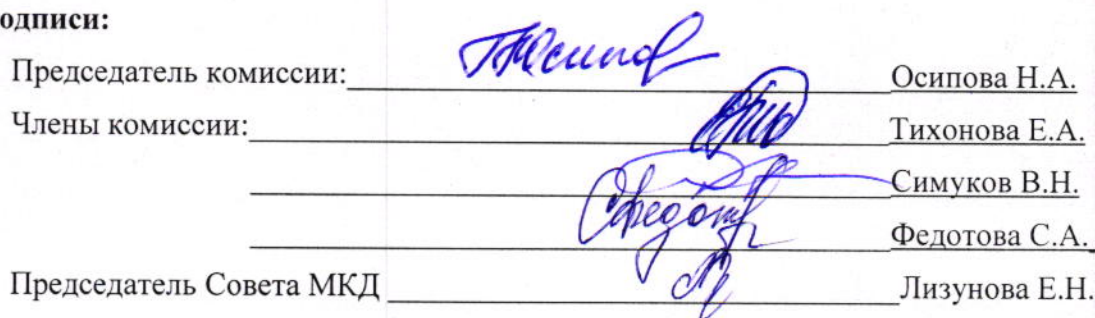 одписи:
Председатель комиссии: Осипова Н.А.
Члены комиссии: Тихонова Е.А.
Симуков В.Н.
Федотова С.А.
Председатель Совета МКД Лизунова Е.Н.